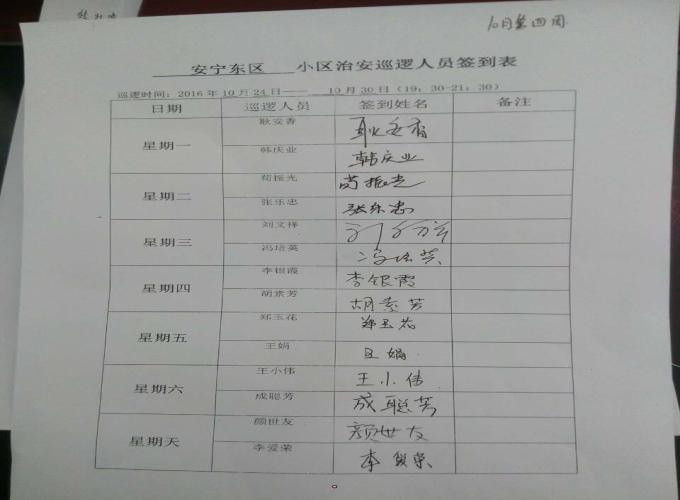 10月第四周
安宁东区 小区治安巡逻人员签到表
巡逻时间：2016年10月24日—— 10月30日（19：30-21：30）
日期 巡逻人员 签到姓名 备注
星期一
耿安香 耿安香
韩庆业 韩庆业
星期二
荀振光 荀振光
张乐忠 张乐忠
星期三
刘文祥 刘文祥
冯培英 冯培英
星期四
李银霞 李银霞
胡素芳 胡素芳
星期五
郑玉花 郑玉花
王娟 王娟
星期六
王小伟 王小伟
成聪芳 成聪芳
星期天
颜世友 颜世友
李爱荣 李爱荣